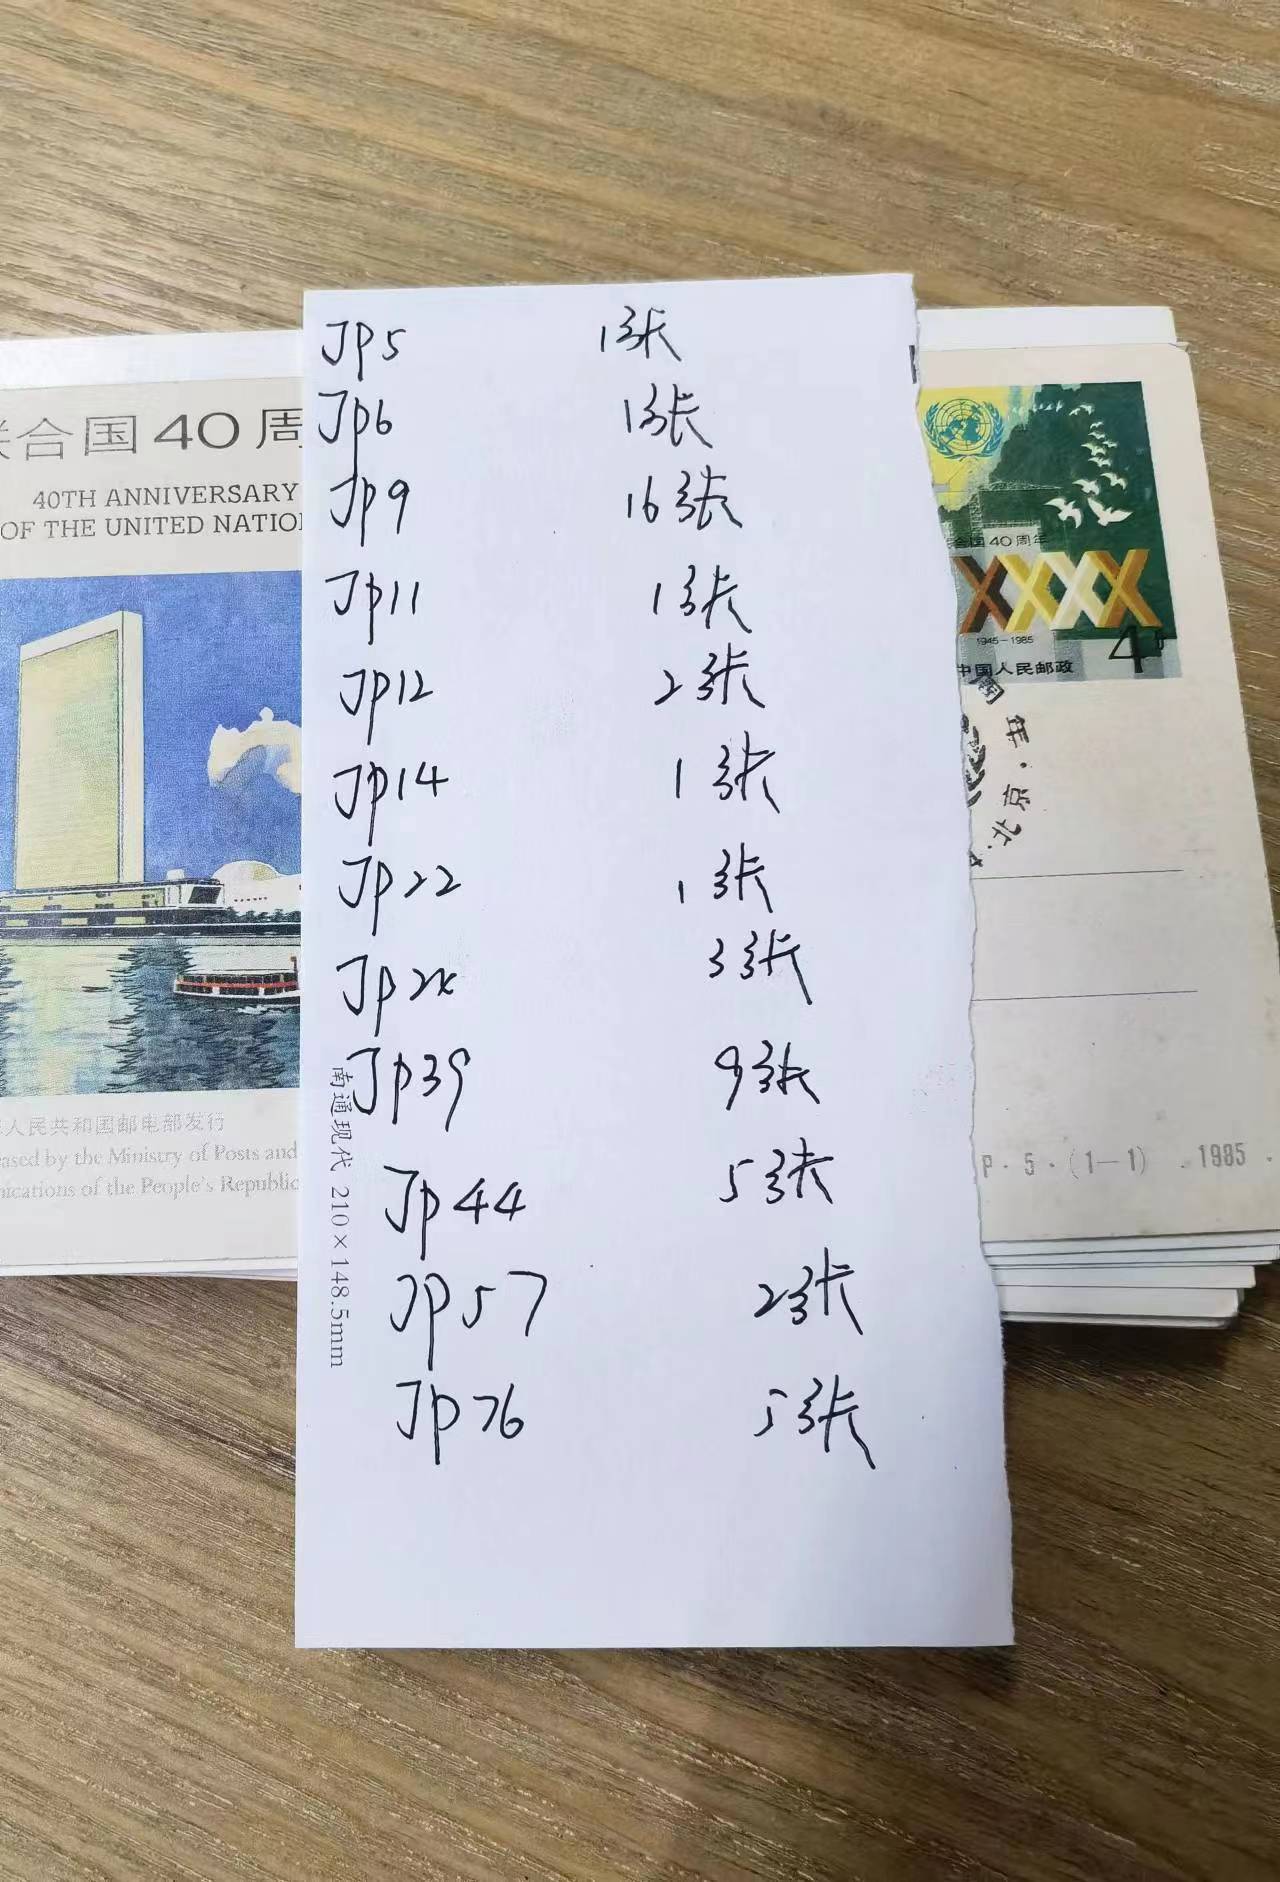 JP5 1张
JP6 1张
JP9 16张
JP11 1张
JP12 2张
JP14 1张
JP22 1张
3张
JP39 9张
JP44 5张
JP57 2张
JP76 5张
南通现代 210×148.5mm
联合国40周
40TH ANNIVERSARY
OF THE UNITED NATIO
人民共和国邮电部发行
ased by the Ministry of Posts and
ications of the People's Republic
合国40周年
XXXX
1945-1985
4分
中国人民邮政
北京
P·5·(1-1) .1985.